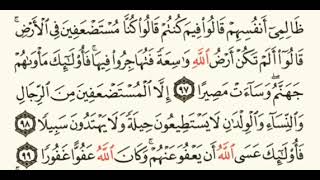 ظَالِمِىٓ أَنفُسِهِمْ قَالُوا۟ فِيمَ كُنتُمْ قَالُوا۟ كُنَّا مُسْتَضْعَفِينَ فِى ٱلْأَرْضِ ۚ
قَالُوٓا۟ أَلَمْ تَكُنْ أَرْضُ ٱللَّهِ وَٰسِعَةً فَتُهَاجِرُوا۟ فِيهَا ۚ فَأُو۟لَٰٓئِكَ مَأْوَىٰهُمْ
جَهَنَّمُ ۖ وَسَآءَتْ مَصِيرًا ٩٧ إِلَّا ٱلْمُسْتَضْعَفِينَ مِنَ ٱلرِّجَالِ
وَٱلنِّسَآءِ وَٱلْوِلْدَٰنِ لَا يَسْتَطِيعُونَ حِيلَةً وَلَا يَهْتَدُونَ سَبِيلًا ٩٨
فَأُو۟لَٰٓئِكَ عَسَى ٱللَّهُ أَن يَعْفُوَ عَنْهُمْ ۚ وَكَانَ ٱللَّهُ عَفُوًّا غَفُورًا ٩٩